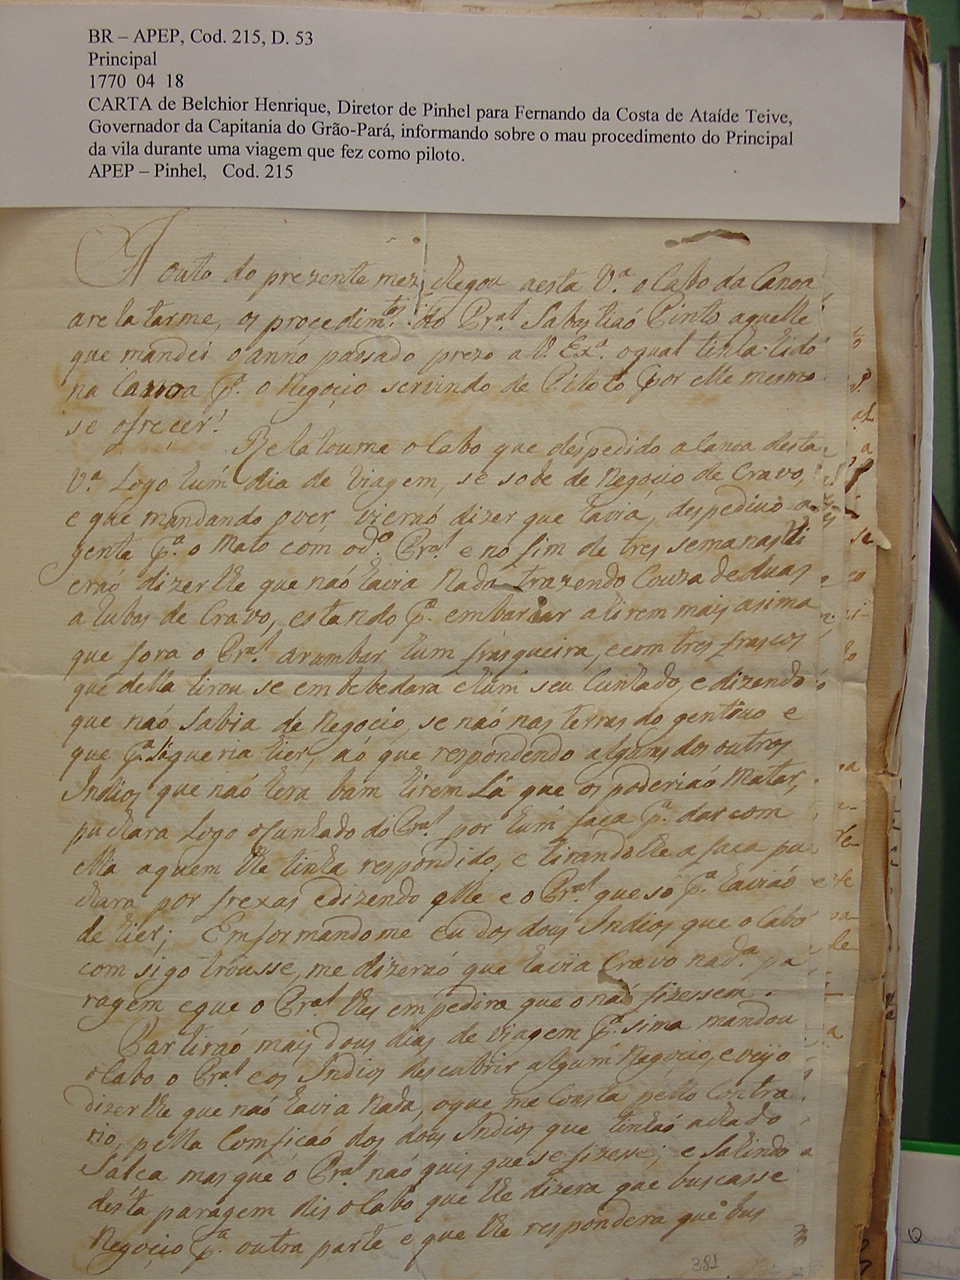 BR – APEP, Cod. 215, D. 53
Principal
1770 04 18
CARTA de Belchior Henrique, Diretor de Pinhel para Fernando da Costa de Ataíde Teive,
Governador da Capitania do Grão-Pará, informando sobre o mau procedimento do Principal
da vila durante uma viagem que fez como piloto.
APEP – Pinhel, Cod. 215
A outo do prezente mez chegou aesta V.ª o Cabo da Canoa
arelatarme, os procedim.tos do Pral Sabastiaó Pinto aquelle
que mandei o anno pasado prezo a V. Ex.ª oqual tinha hido
na Canoa p.ª o Negocio servindo de Piloto por elle mesmo
se ofrecer.
Relatoume o Cabo que despedido a Canoa desta
V.ª Logo hum dia de Viagem, se sobe de Negocio de Cravo,
e que mandando over, vieraó dizer que havia, despedio a
gente p.ª o Mato com od.º Pral e no fim de tres semanas vi
eraó dizer lhe que naó havia Nada trazendo Couza de duas
atubas de Cravo, estando p.ª embarcar a hirem mais asima
que fora o Pral arombar hum frasqueira, ecom tres frascos
que della tirou se embebedara ehum seu Cunhado, e dizendo
que naó Sabia de Negocio, se naó nas terras do gentio e
que p.ª Lá queria hier, aó que respondendo alguns dos outros
Indios que naó hera bam hirem Lá que os poderiaó Matar,
puchara Logo o Cunhado do Pral por hum faca p.ª dar com
ella aquem lhe tinha respondido, e tirandolhe a faca pu
chara por frexas edizendo elle e o Pral que só p.ª haviaó
de hier; Emformandome eu dos dous Indios que o Cabo
com sigo trousse, me dizeraó que havia Cravo nad.ª pa
ragem eque o Pral lhes empedira que o naó fizessem.
Partiraó mais dous dias de Viagem p.ª sima mandou
o Cabo o Pral eos Indios descubrir algum Negocio, eveyo
dizer lhe que naó havia Nada, oque me Consta pello Contra
rio, pella Comficaó dos dous Indios que tinhaó achado
Salca mas que o Pral naó quis que se fizesse; e Sahindo
desta paragem dis o Cabo que lhe dizera que buscasse
Negocio p.ª outra parte e que lhe respondera que bus
381